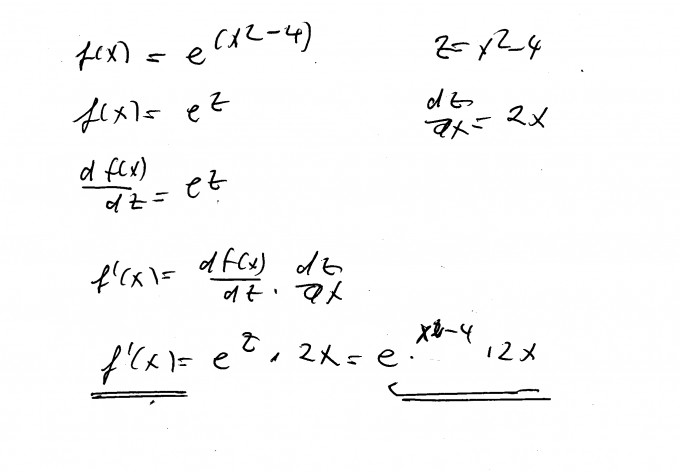 f(x) = e^(x²-4) z = x²-4
f(x) = e^z dz/dx = 2x
d f(x)/dz = e^z
f'(x) = d f(x)/dz · dz/dx
f'(x) = e^z · 2x = e^(x²-4) · 2x